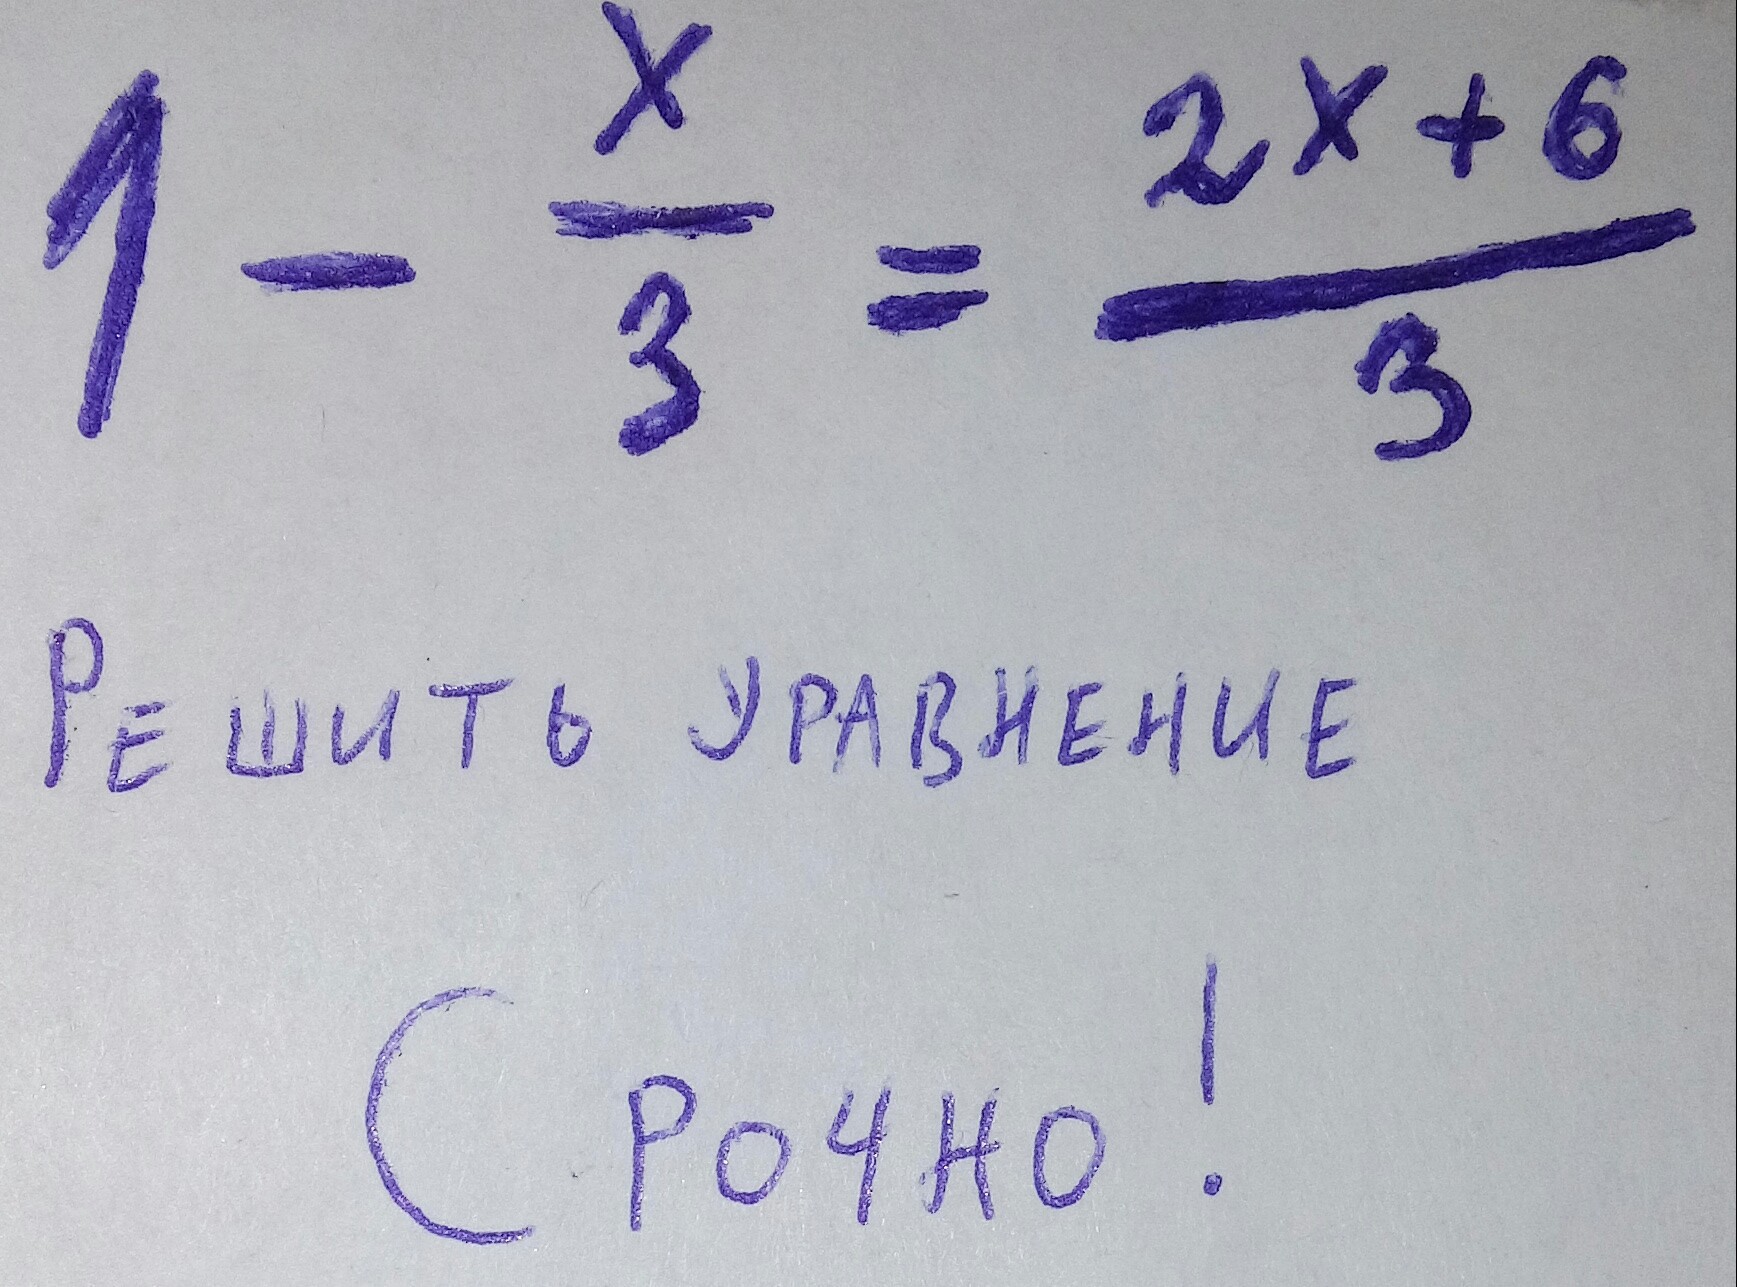 1 - x/3 = (2x+6)/3
Решить уравнение
Срочно!